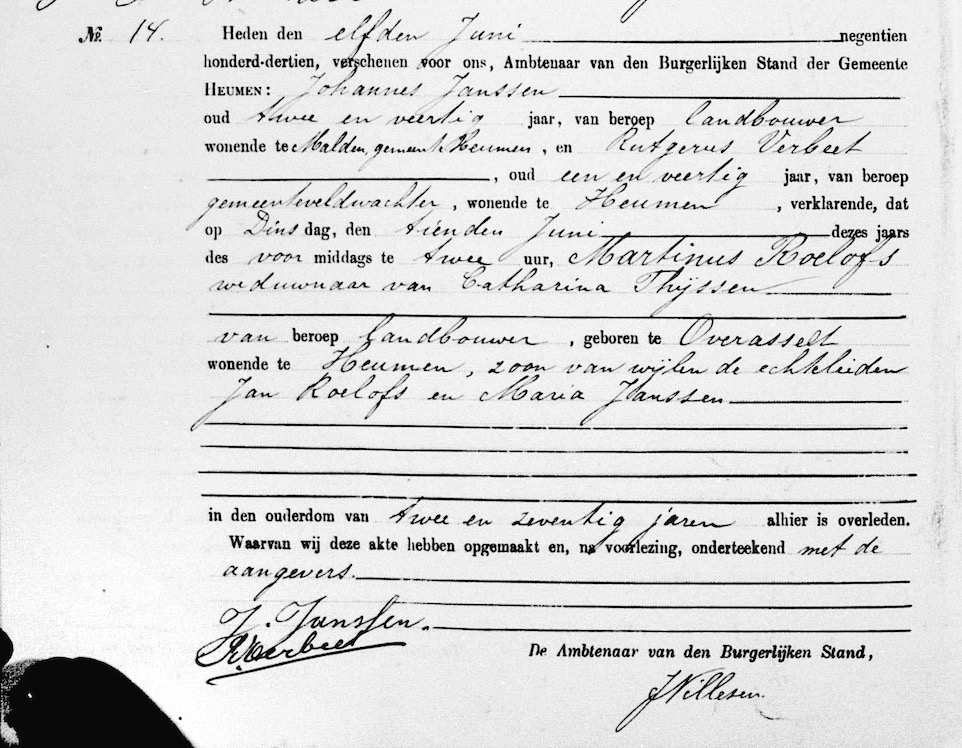 №. 14. Heden den elfden Juni negentien
honderd-dertien, verschenen voor ons, Ambtenaar van den Burgerlijken Stand der Gemeente
HEUMEN: Johannes Janssen
oud twee en veertig jaar, van beroep landbouwer
wonende te Malden, gemeente Heumen, en Rutgerus Verbeet
, oud een en veertig jaar, van beroep
gemeenteveldwachter, wonende te Heumen, verklarende, dat
op Dinsdag, den tienden Juni dezes jaars
des voormiddags te twee uur, Martinus Roelofs
weduwnaar van Catharina Thijssen
van beroep landbouwer, geboren te Overasselt
wonende te Heumen, zoon van wijlen de echtelieden
Jan Roelofs en Maria Janssen
in den ouderdom van twee en zeventig jaren alhier is overleden.
Waarvan wij deze akte hebben opgemaakt en, na voorlezing, onderteekend met de
aangevers.
J. Janssen.
R. Verbeet
De Ambtenaar van den Burgerlijken Stand,
JWillesen.